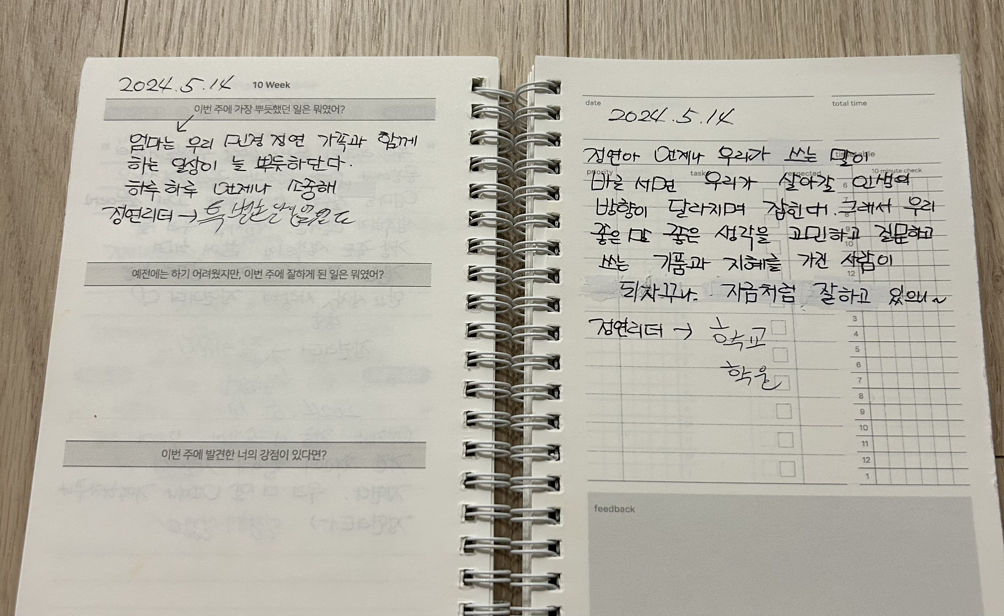 2024.5.14 10 Week
이번 주에 가장 뿌듯했던 일은 뭐였어?
엄마는 우리 민경 정연 가족과 함께
하는 일상이 늘 뿌듯하단다.
하루하루 언제나 소중해
정연리더 → 특별한 날 없음
예전에는 하기 어려웠지만, 이번 주에 잘하게 된 일은 뭐였어?
이번 주에 발견한 너의 강점이 있다면?
date total time
2024.5.14
정연아 언제나 우리가 쓰는 말이
바로 서면 우리가 살아갈 인생의
방향이 달라지며 잡힌다. 그래서 우리
좋은 말 좋은 생각을 고민하고 질문하고
쓰는 기품과 지혜를 가진 사람이
되자꾸나. 지금처럼 잘하고 있으니~
정연리더 → 학교
학원
priority task
10 minute check
6
12
3
4
5
6
7
8
9
10
11
12
1
feedback